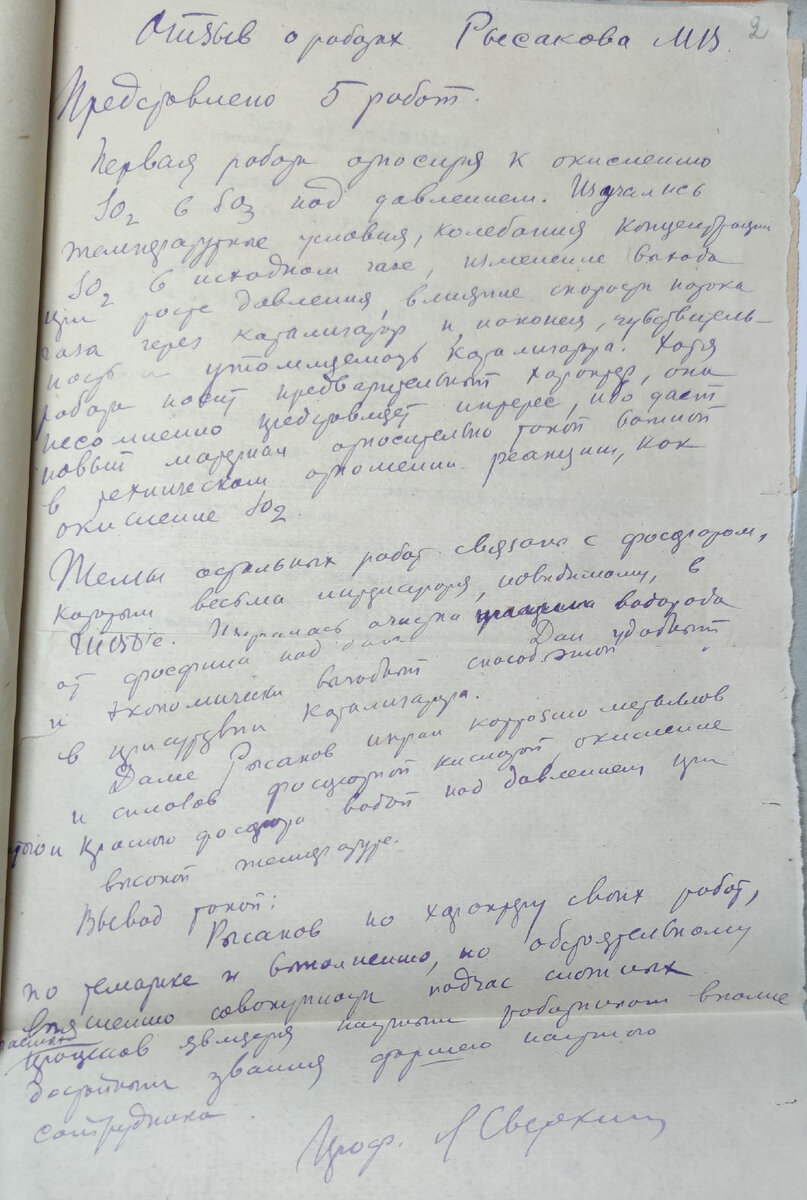 2
Отзыв о работах Рысакова М.В.
Представлено 5 работ.
Первая работа относится к окислению
SO2 в SO3 под давлением. Изучались
температурные условия, колебания концентрации
SO2 в исходном газе, изменение выхода
при росте давления, влияние скорости потока
газа через катализатор и, наконец, чувствитель-
ность и утомляемость катализатора. Хотя
работа носит предварительный характер, она
несомненно представляет интерес, ибо дает
новый материал относительно такой важной
в техническом отношении реакции, как
окисление SO2.
Темы остальных работ связаны с фосфором,
которым весьма интересуются, повидимому, в
Изучалась очистка водорода
от фосфина над Дан удобный
и экономически выгодный способ этой
в присутствии катализатора.
Далее Рысаков изучал коррозию металлов
и сплавов фосфорной кислотой, окисление
и красного фосфора водой под давлением при
высокой температуре.
Вывод такой:
Рысаков по характеру своих работ,
по тематике и выполнению, по обстоятельному
выяснению совокупности подчас сложных
процессов является научным работником вполне
достойным звания старшего научного
сотрудника.
Проф.